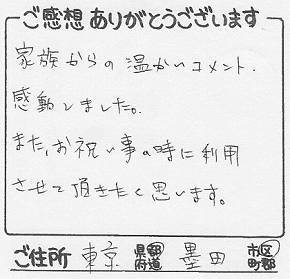 ご感想ありがとうございます
家族からの温かいコメント.
感動しました。
また、お祝い事の時に利用
させて頂きたく思います。
ご住所 東京 都道府県 墨田 市区町郡